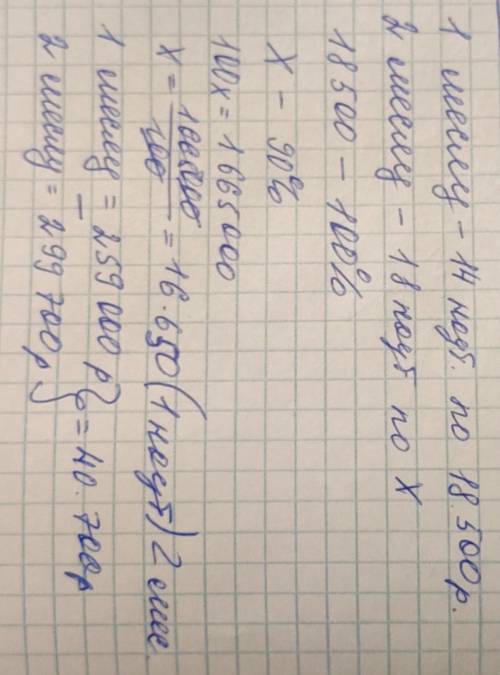 1 месяц - 14 ноут. по 18.500р.
2 месяц - 18 ноут по х
18500 - 100%
х - 90%
100х = 1665000
х = 1665000/100 = 16.650 (1 ноут) 2 мес.
1 месяц = 259000 р } = 40.700р
-
2 месяц = 299700р